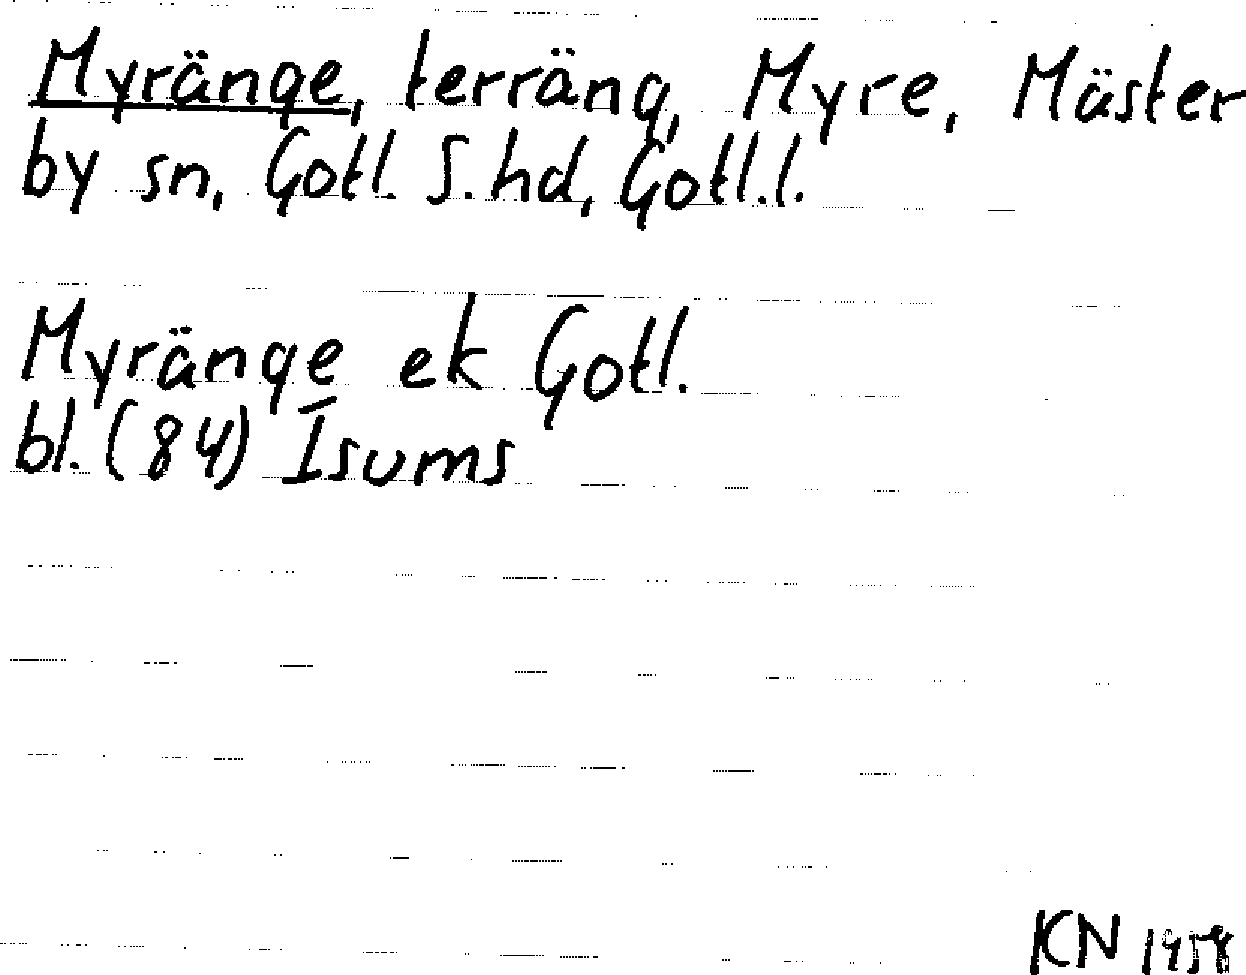 Myränge, terräng, Myre, Mäster
by sn, Gotl. S. hd, Gotl. l.
Myränge ek Gotl.
bl. (84) Isums
KN 1958